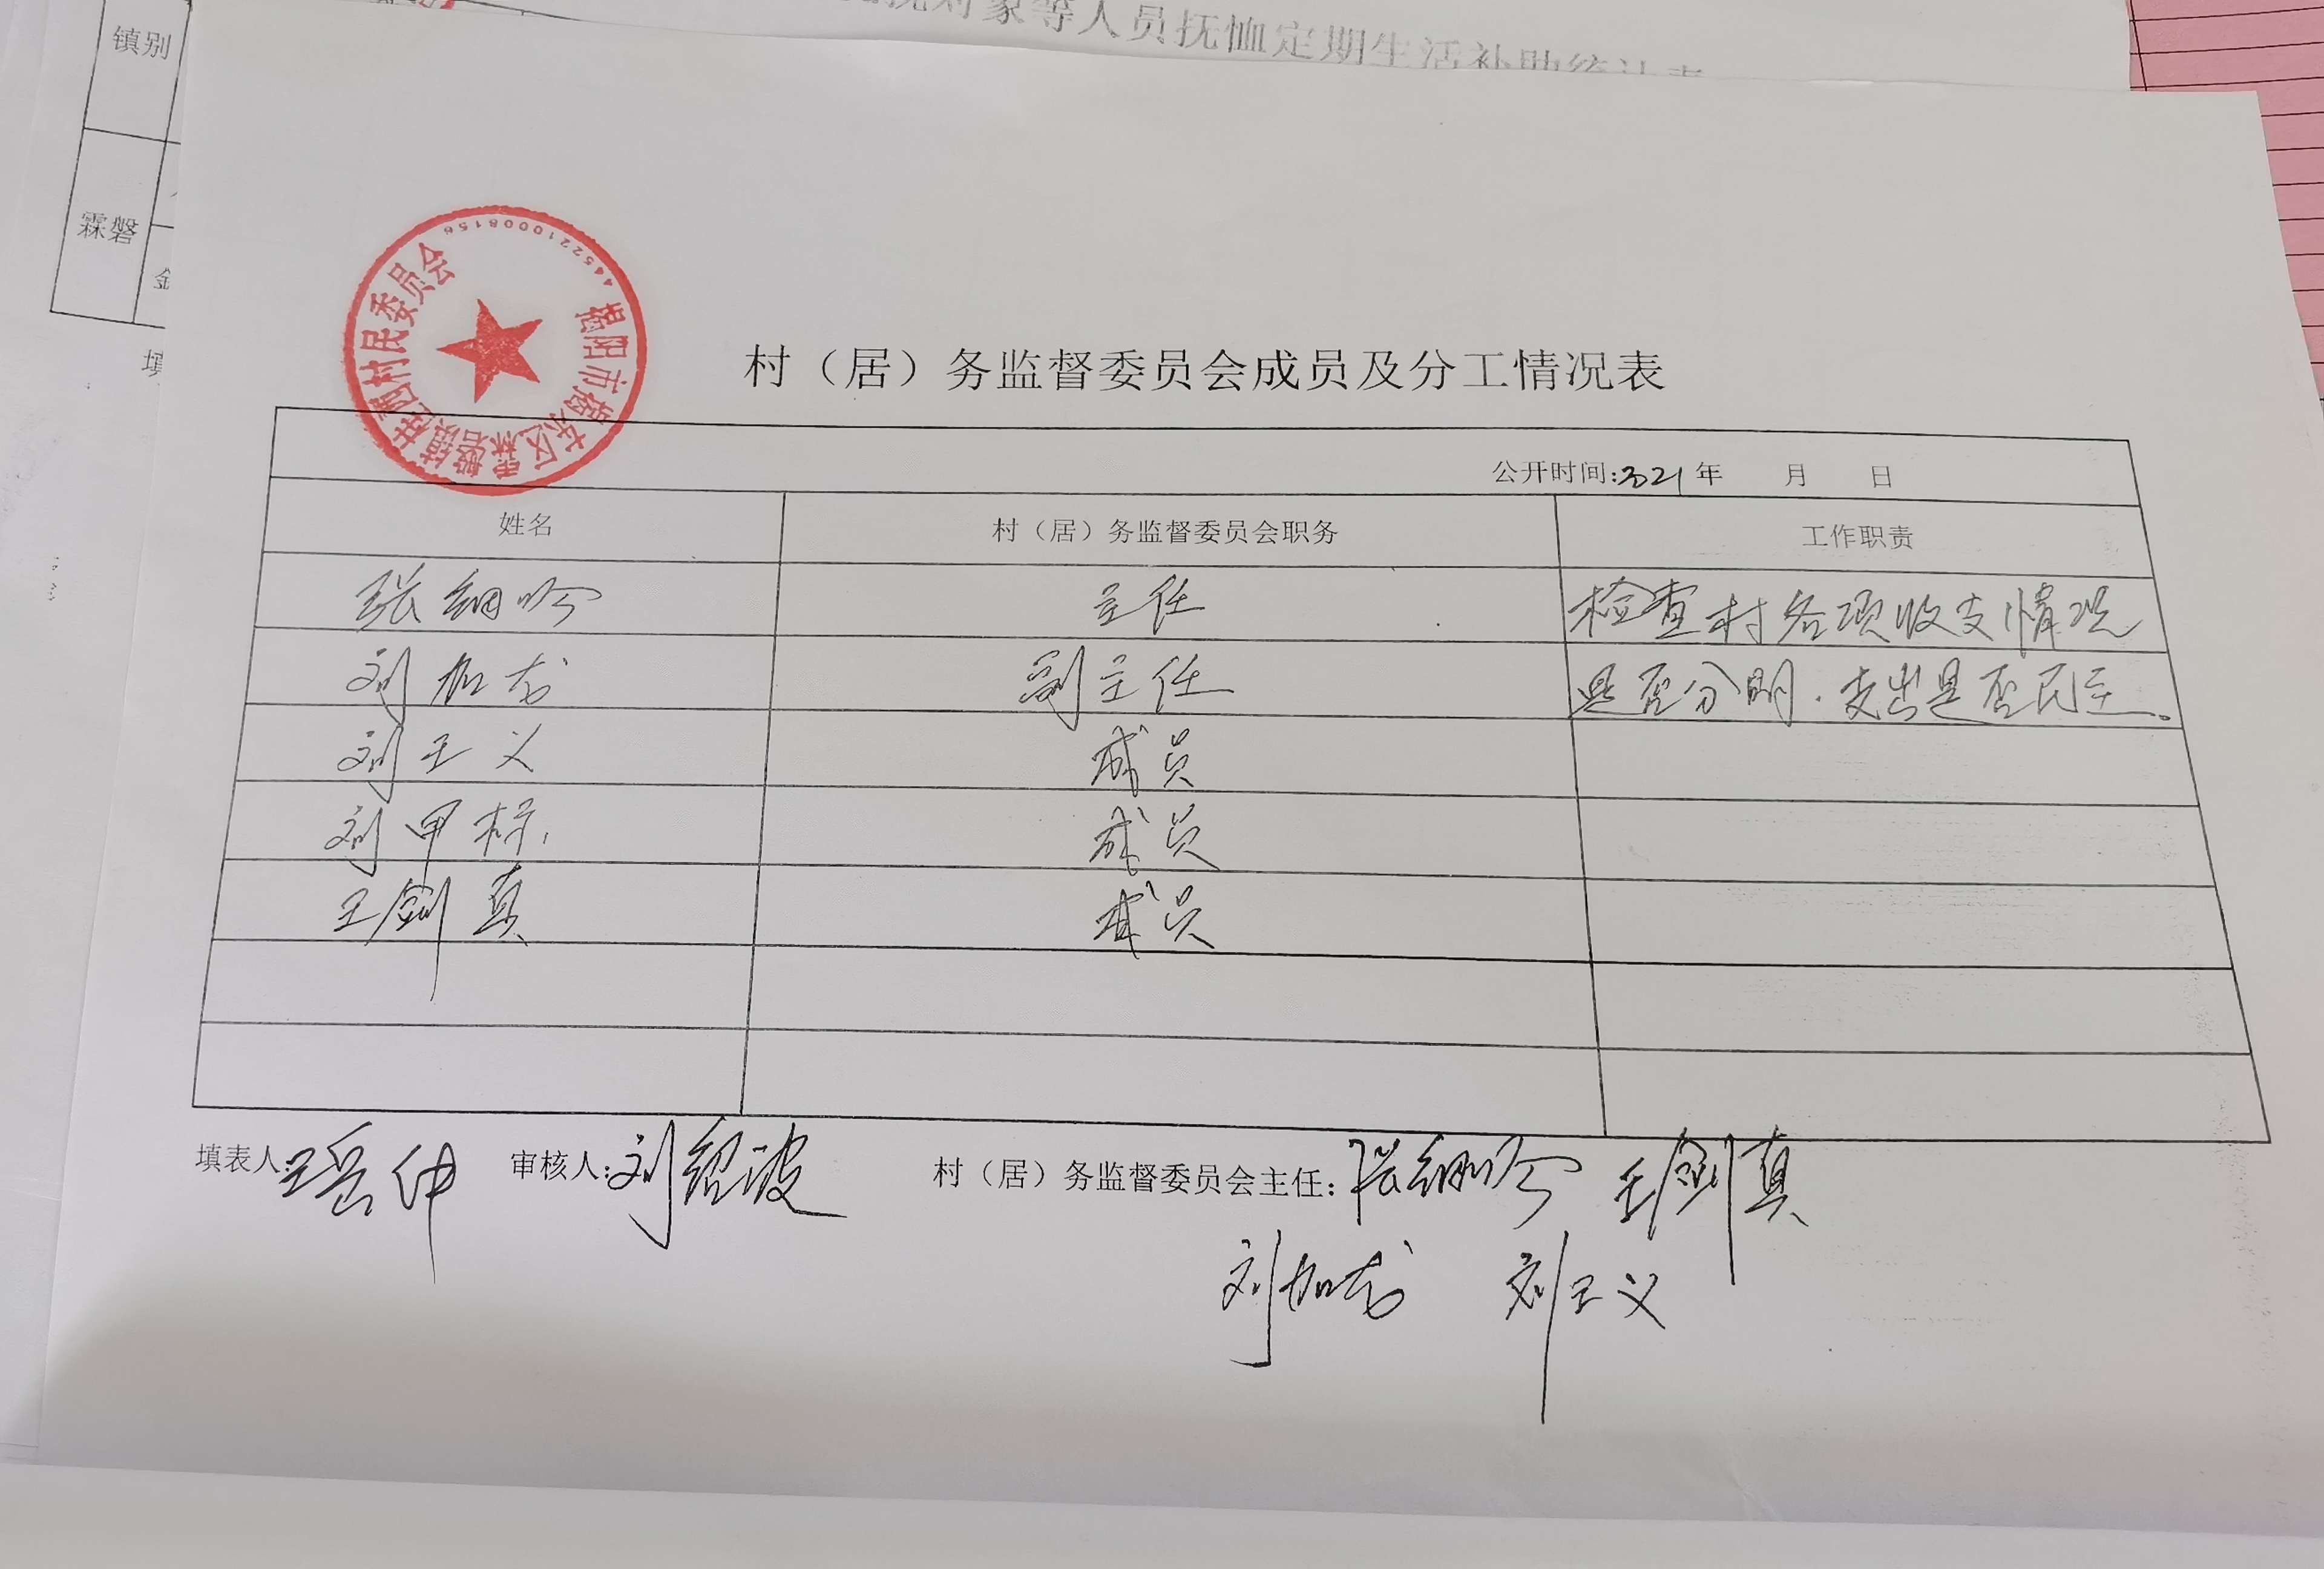 象等人员抚恤定期生活补助统计表
镇别
霖磐
金
填
揭阳市揭东区霖磐镇桂西村民委员会
4452210008156
村（居）务监督委员会成员及分工情况表
公开时间:2021年 月 日
姓名 村（居）务监督委员会职务 工作职责
张细吟 主任 检查村各项收支情况
刘加龙 副主任 是否分明.支出是否民主。
刘王义 成员
刘甲标 成员
王剑真 成员
填表人: 审核人:刘绍波 村（居）务监督委员会主任:张细吟 王剑真
刘加龙 刘王义